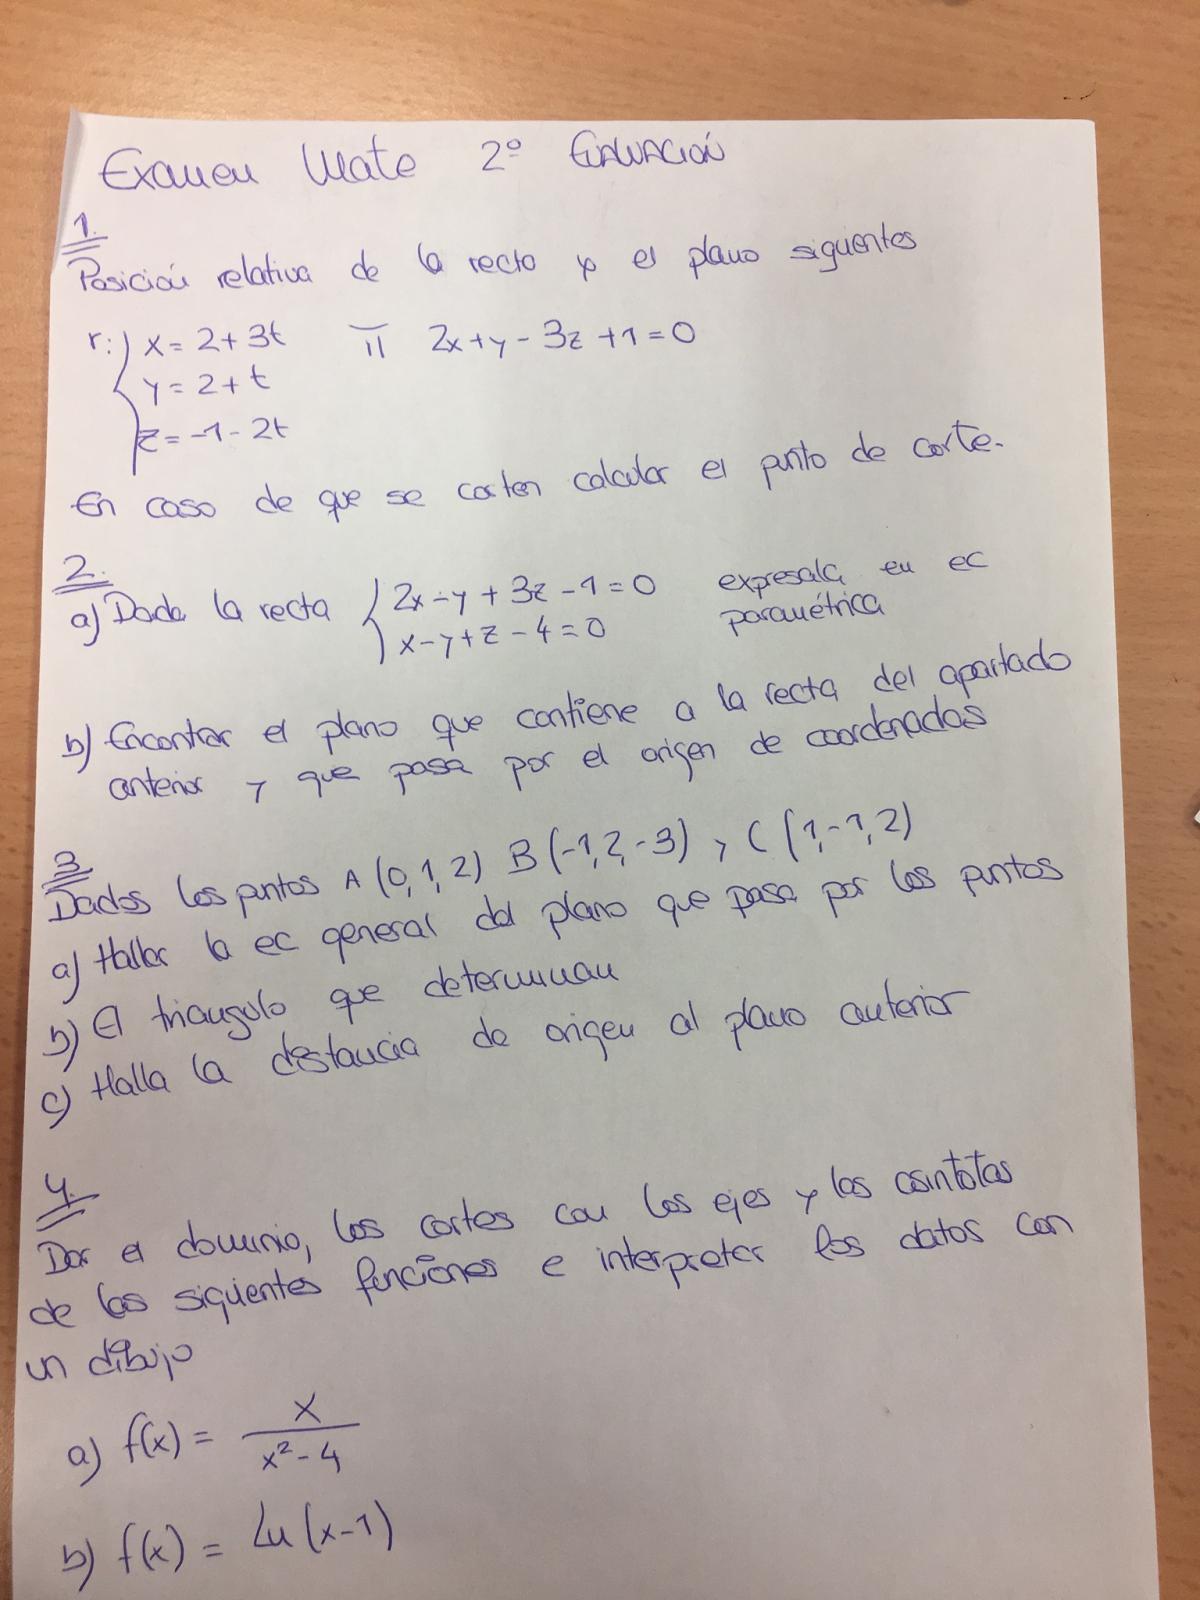 Examen Mate 2º EVALUACIÓN
1.
Posición relativa de la recta y el plano siguientes
r: { x = 2 + 3t     π   2x + y - 3z + 1 = 0
y = 2 + t
z = -1 - 2t
En caso de que se corten calcular el punto de corte.
2.
a) Dada la recta { 2x - y + 3z - 1 = 0   expresala en ec
x - y + z - 4 = 0   paramétrica
b) Encontrar el plano que contiene a la recta del apartado
anterior y que pasa por el origen de coordenadas
3
Dados los puntos A (0, 1, 2) B (-1, 2, -3) y C (1, -1, 2)
a) Hallar la ec general del plano que pasa por los puntos
b) El triángulo que determinan
c) Halla la distancia de origen al plano anterior
4.
Dar el dominio, los cortes con los ejes y las asintotas
de las siguientes funciones e interpretar los datos con
un dibujo
a) f(x) = x / (x² - 4)
b) f(x) = Ln (x - 1)